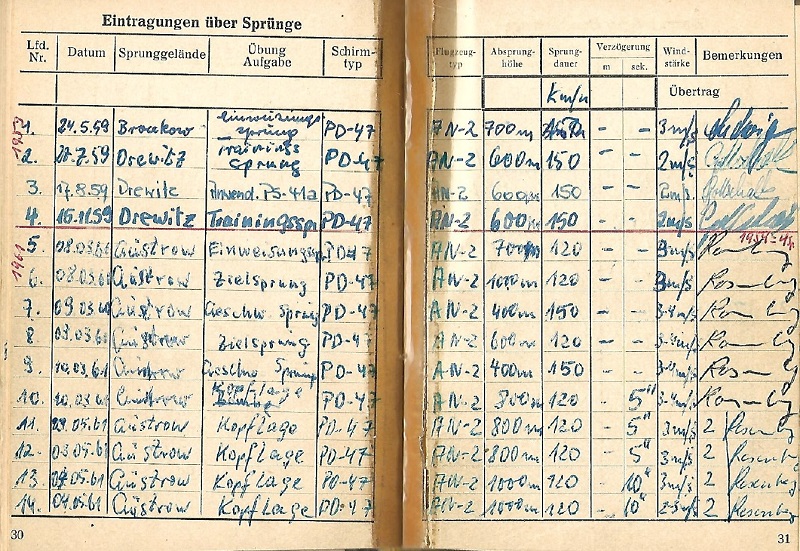 Eintragungen über Sprünge
Lfd. Nr. Datum Sprunggelände Übung Aufgabe Schirm-typ Flugzeug-typ Absprung-höhe Sprung-dauer Verzögerung m sek. Wind-stärke Bemerkungen
Km/h Übertrag
1. 24.5.59 Bronkow Einweisungssprung PD-47 AN-2 700m - - 3m/s
2. 7.59 Drewitz Trainings Sprung PD-47 AN-2 600m 150 - - 2m/s
3. 17.8.59 Drewitz PS-41a PD-47 AN-2 600m 150 - - 2m/s
4. 16.11.59 Drewitz Trainingsspr PD-47 AN-2 600m 150 - - 2m/s
1961
5. 08.03.61 Güstrow Einweisungsspr PD-47 AN-2 700m 120 - - 3m/s
6. 08.03.61 Güstrow Zielsprung PD-47 AN-2 1000m 120 - - 3m/s
7. 09.03.61 Güstrow Geschw. Sprung PD-47 AN-2 400m 150 - - 3-4m/s
8 09.03.61 Güstrow Zielsprung PD-47 AN-2 600m 120 - - 3-4m/s
9. 10.03.61 Güstrow Geschw Sprung PD-47 AN-2 400m 150 - - 3-4m/s
10. 10.03.61 Güstrow Kopflage PD-47 AN-2 800m 120 - 5" 3-4m/s
11. 03.05.61 Güstrow Kopflage PD-47 AN-2 800m 120 - 5" 3m/s 2
12. 03.05.61 Güstrow Kopflage PD-47 AN-2 800m 120 - 5" 3m/s 2
13. 04.05.61 Güstrow Kopflage PD-47 AN-2 1000m 120 - 10" 3m/s 2
14. 04.05.61 Güstrow Kopflage PD-47 AN-2 1000m 120 - 10" 2-3m/s 2
30 31